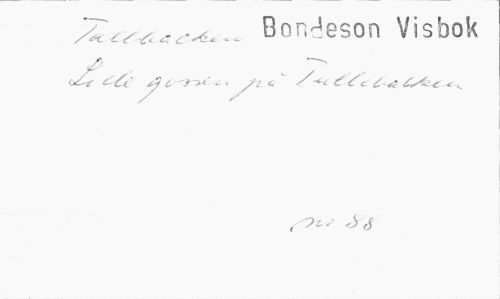 Tallbacken Bondeson Visbok
Lille gossen på Tullebacken
nr 88